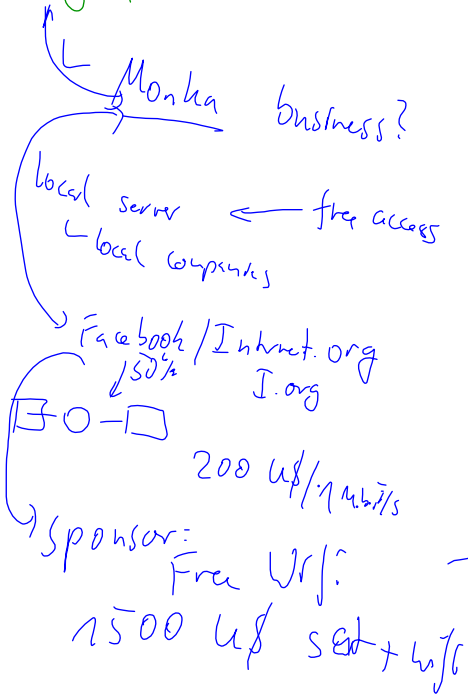 Monka business?
Local server ← free access
local companies
Facebook/Internet.org
50%
I.org
200 U$/1 Mbit/s
Sponsor:
Free Wifi
1500 U$ sat + wifi